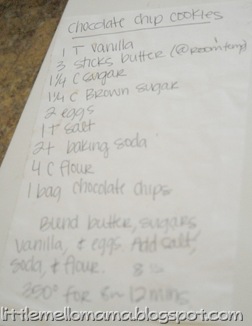 chocolate chip cookies
1 T vanilla
3 sticks butter (@roomtemp)
1 1/4 C sugar
1 1/4 C Brown sugar
2 eggs
1 T salt
2 t baking soda
4 C flour
1 bag chocolate chips
Blend butter, sugars
vanilla, & eggs. Add salt,
soda, & flour.
350° for 8-12 mins
littlemellomama.blogspot.com